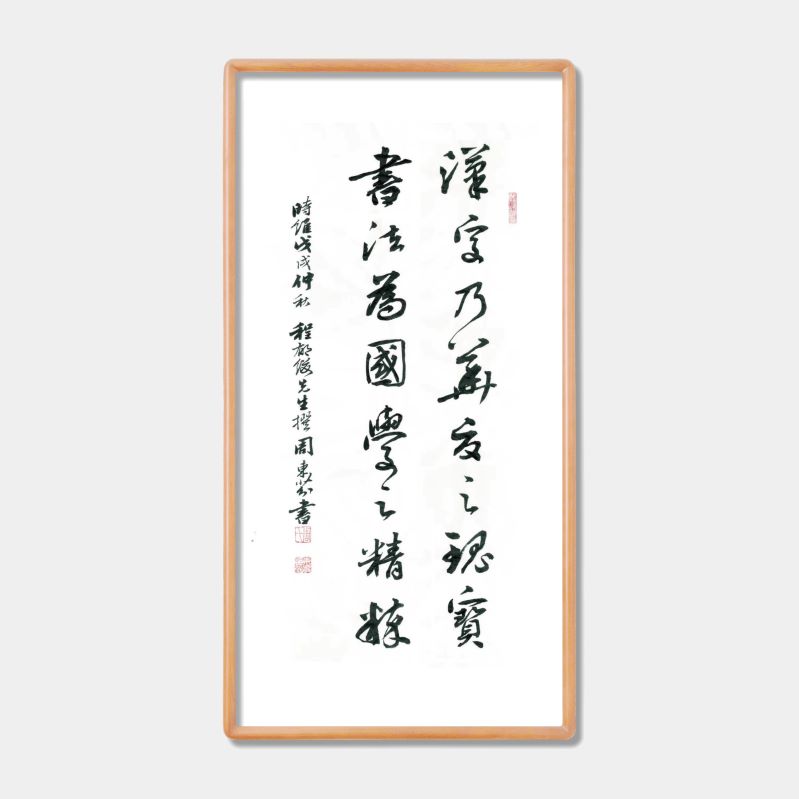 漢字乃華夏之瑰寶
書法為國學之精粹
時維戊戌仲秋 程郁缀先生撰 周東芬書